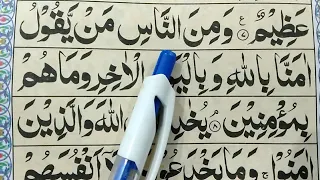 عَظِيْمٌ ۷ وَمِنَ النَّاسِ مَنْ يَّقُوْلُ
اٰمَنَّا بِاللّٰهِ وَبِالْيَوْمِ الْاٰخِرِ وَمَا هُمْ
بِمُؤْمِنِيْنَ ۘ ۸ اللّٰهَ وَالَّذِيْنَ
اٰمَنُوْا ۚ وَمَا يَخْدَعُوْنَ اِلَّاۤ اَنْفُسَهُمْ